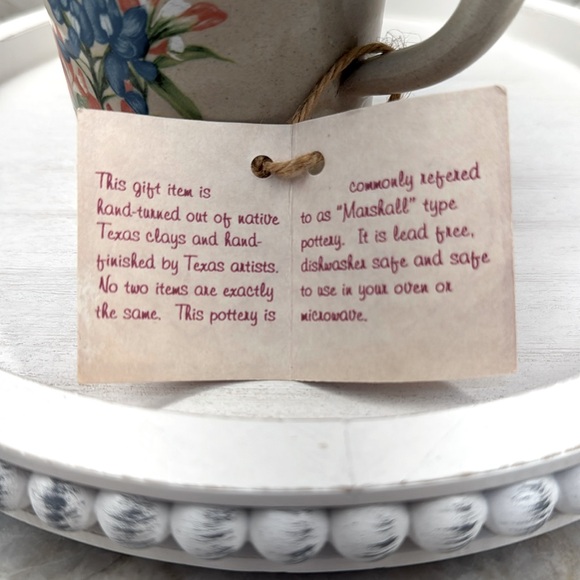 This gift item is
hand-turned out of native
Texas clays and hand-
finished by Texas artists.
No two items are exactly
the same. This pottery is
commonly refered
to as "Marshall" type
pottery. It is lead free,
dishwasher safe and safe
to use in your oven or
microwave.